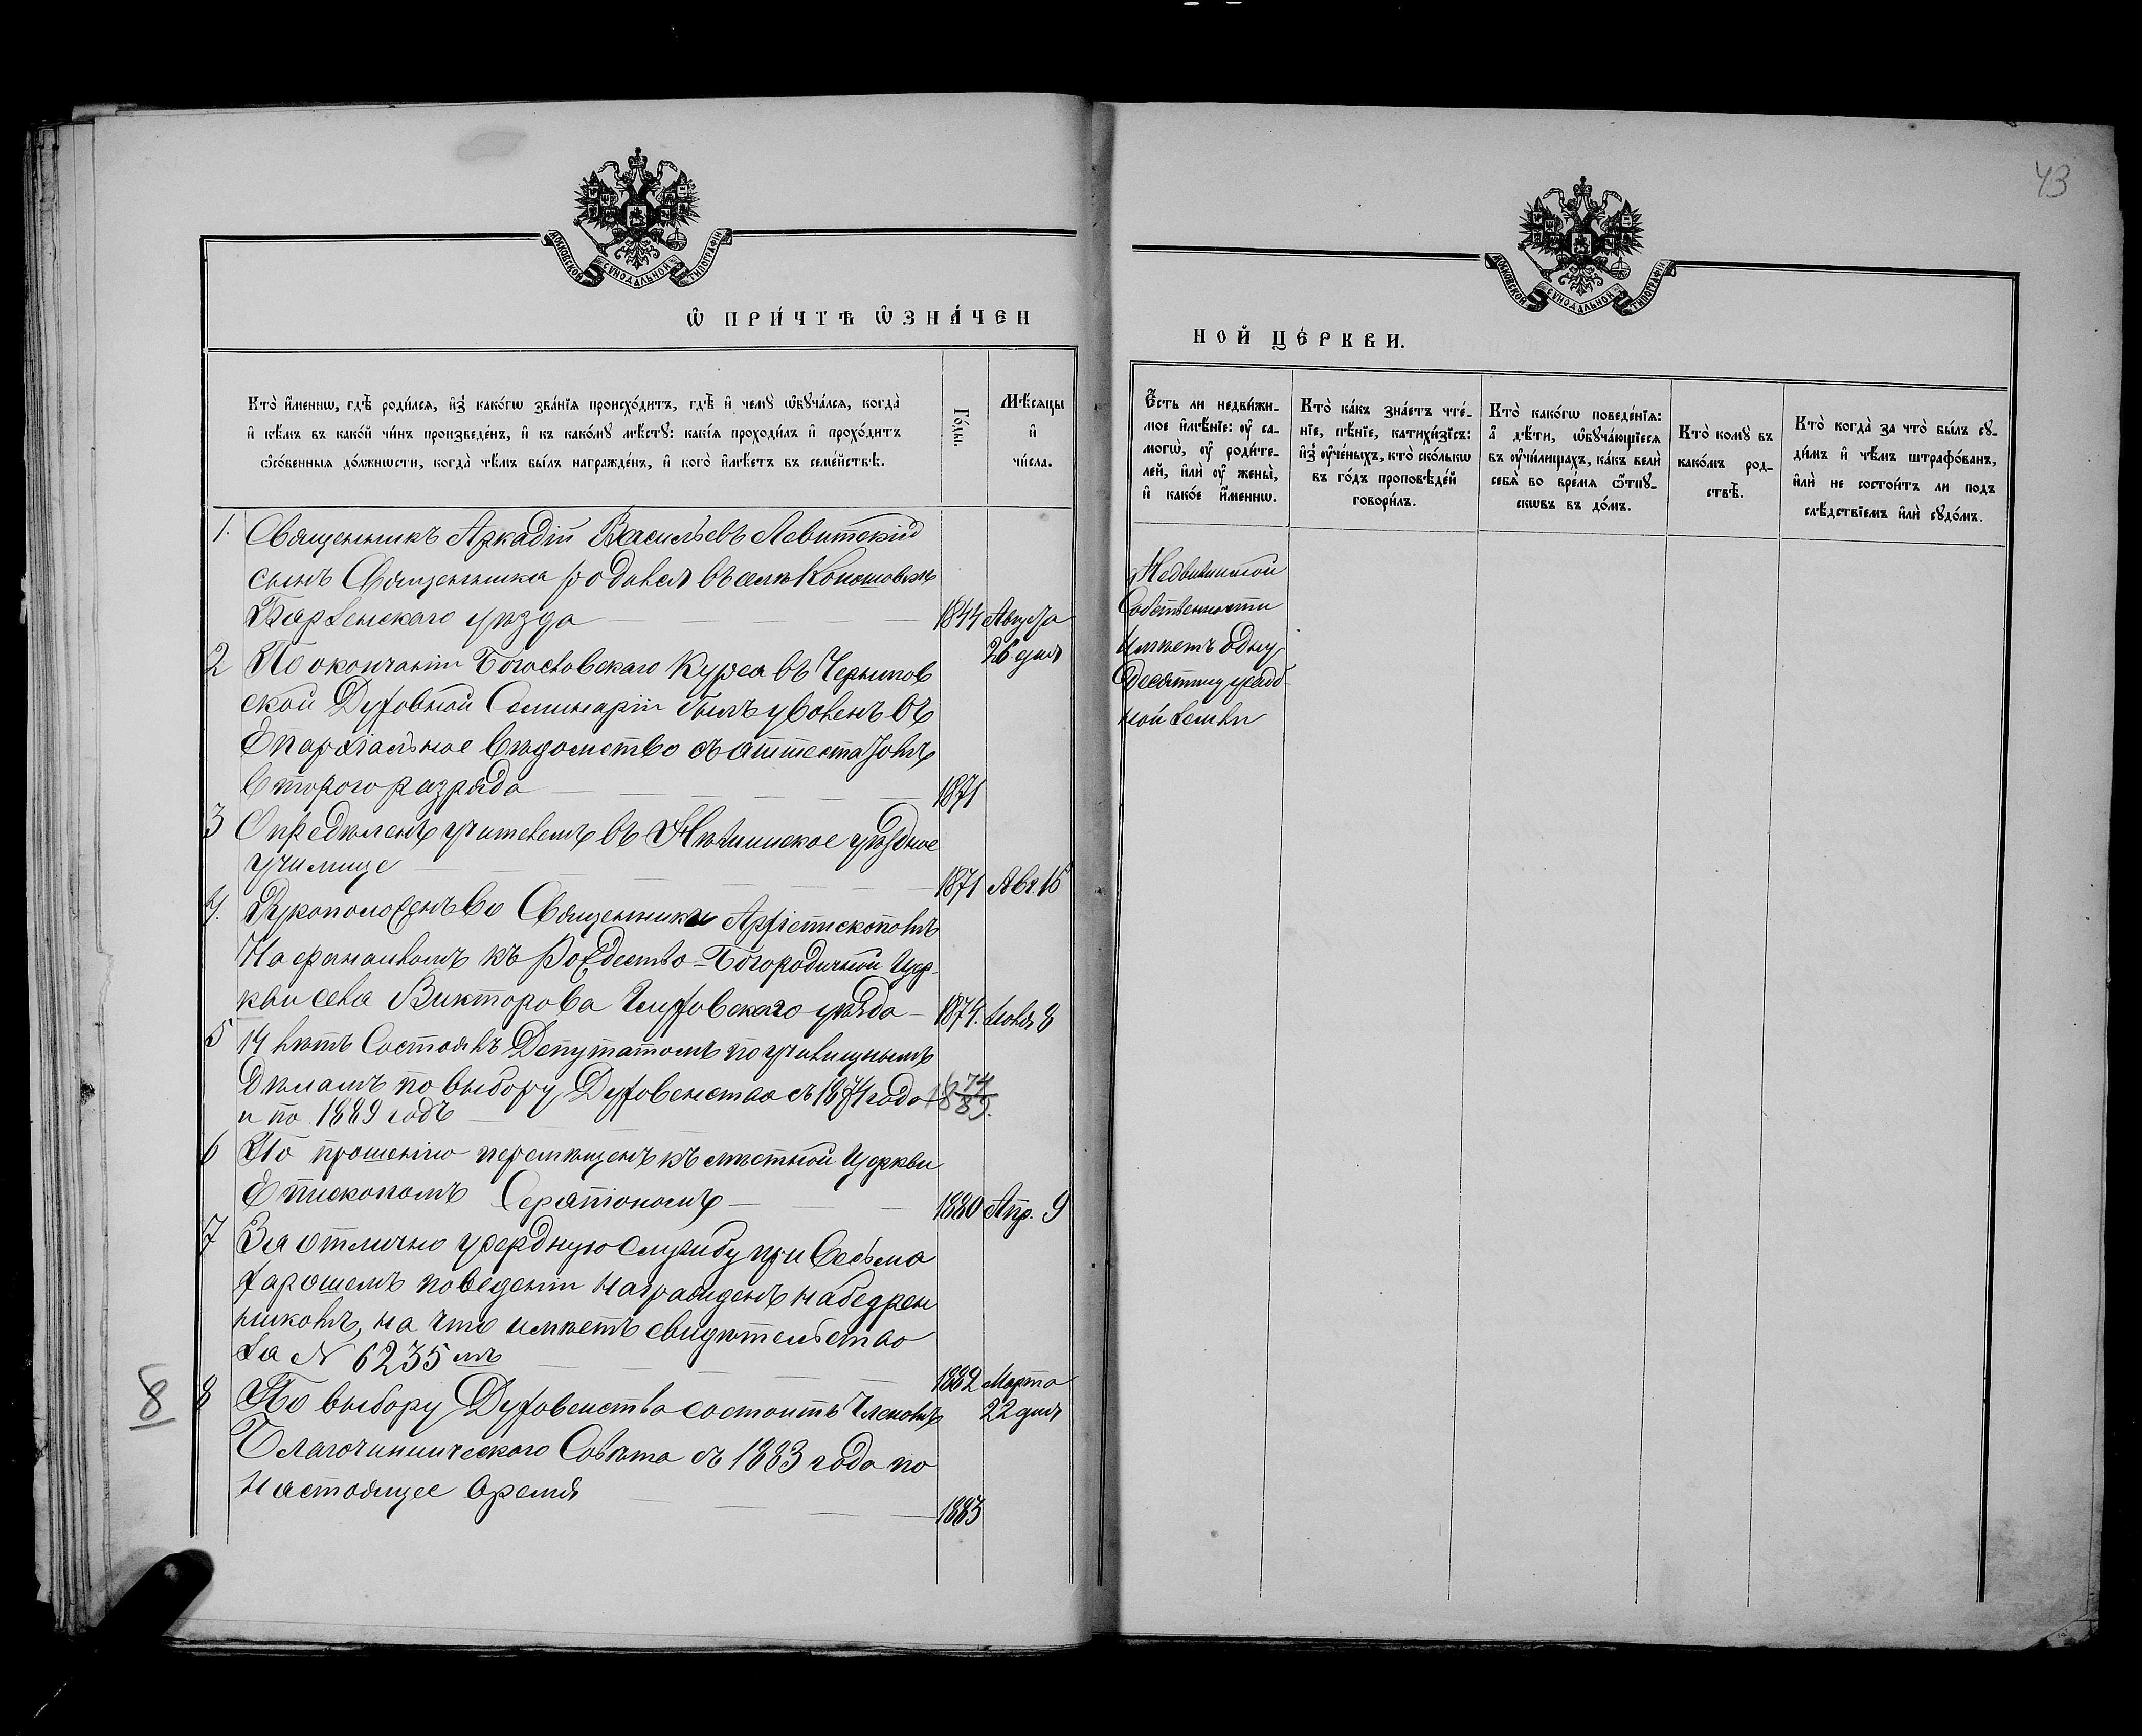 43
МОСКОВСКОЙ СѴНОДАЛЬНОЙ ТИПОГРАФІИ
МОСКОВСКОЙ СѴНОДАЛЬНОЙ ТИПОГРАФІИ
Ѡ ПРИ́ЧТѢ Ѡ҆ЗНА́ЧЕН
НОЙ ЦЕ́РКВИ.
Кто̀ и҆́меннѡ, гдѣ̀ роди́лсѧ, и҆з̾ како́гѡ зва́нїѧ происхо́дитъ, гдѣ̀ и҆ чемꙋ̀ ѡ҆бꙋча́лсѧ, когда̀
и҆ кѣ́мъ въ како́й чи́нъ произведе́нъ, и҆ къ како́мꙋ мѣ́стꙋ: какі́ѧ проходи́лъ и҆ прохо́дитъ
ѡ҆со́бенныѧ до́лжнѡсти, когда̀ чѣ́мъ бы́лъ награжде́нъ, и҆ кого̀ и҆мѣ́етъ въ семе́йствѣ.
Го́ды.
Мѣ́сѧцы
и҆
чи́сла.
Е҆́сть ли недви́жи-
мое и҆мѣ́нїе: ᲂу҆ са-
могѡ̀, ᲂу҆ роди́те-
лей, и҆лѝ ᲂу҆ жены̀,
и҆ како́е и҆́меннѡ.
Кто̀ ка́къ зна́етъ чте́-
нїе, пѣ́нїе, катихи́зїсъ:
и҆з̾ ᲂу҆че́ныхъ, кто̀ ско́лькѡ
въ го́дъ проповѣ́дей
говори́лъ.
Кто̀ како́гѡ поведе́нїѧ:
а҆ дѣ́ти, ѡ҆бꙋча́ющїесѧ
въ ᲂу҆чи́лищахъ, ка́къ велѝ
себѧ̀ во вре́мѧ ѿпꙋ-
скѡвъ въ до́мъ.
Кто̀ комꙋ̀ въ
како́мъ род-
ствѣ̀.
Кто̀ когда̀ за что̀ бы́лъ сꙋ-
ди́мъ и҆ чѣ́мъ штрафо́ванъ,
и҆лѝ не состои́тъ ли под̾
слѣ́дствїемъ и҆лѝ сꙋдо́мъ.
1. Священникъ Аркадій Васильевъ Левитскій
сынъ Священника родился въ селѣ
уѣзда 1844 Августа
26 дня
2 По окончаніи Богословскаго Курса въ Чернигов
ской Духовной Семинаріи былъ уволенъ въ
Епархіальное вѣдомство съ аттестатомъ
второго разряда 1871
3 Опредѣленъ учителемъ въ Нѣжинское уѣздное
училище 1871 Авг. 16
4. Рукоположенъ во Священника Архіепископомъ
Нафанаиломъ къ Рождество-Богородичной Цер-
кви села Викторова Глуховскаго уѣзда 1874. Іюля 8
5 14 лѣтъ Состоялъ Депутатомъ по училищнымъ
дѣламъ по выбору Духовенства съ 1874 года 1874/89.
и по 1889 годъ
6 По прошенію перемѣщенъ къ мѣстной Церкви
Епископомъ Серапіономъ 1880 Апр. 9
7 За отлично усердную службу при весьма
хорошемъ поведеніи награжденъ набедрен
никомъ, на что имѣетъ свидѣтельство
за № 6235 мъ 1882 Марта
22 дня
8
8 По выбору Духовенства состоитъ Членомъ
Благочинническаго Совѣта съ 1883 года по
настоящее время 1883
Недвижимой
Собственности
имѣетъ одну
десятину усадеб
ной земли